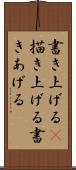 書き上げる
描き上げる書
きあげる